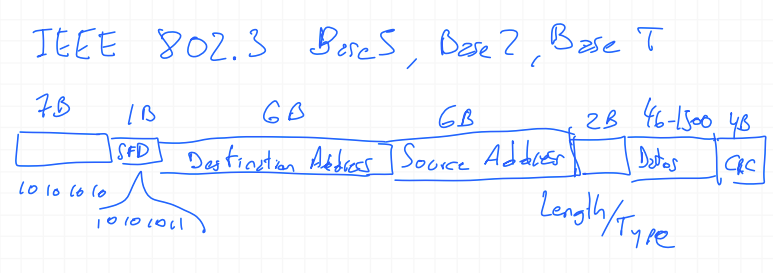 IEEE 802.3 Base5, Base2, Base T
7B 1B 6B 6B 2B 46-1500 4B
SFD Destination Address Source Address Datos CRC
10101010
10101011
Length/Type